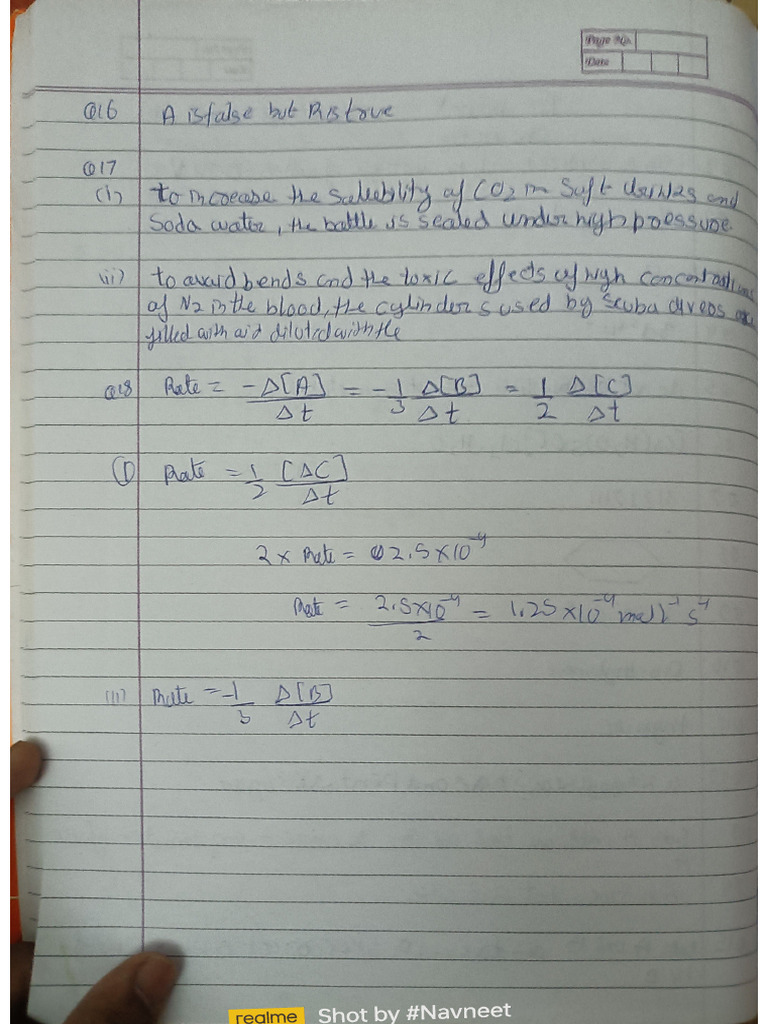 Page No.
Date
Q16 A is false but R is true
Q17
(i) to increase the saluebility of CO2 in Suft drinks and
Soda water, the battle is sealed under high pressure
(ii) to avaid bends and the toxic effects of high
of N2 in the blood, the cylinders used by scuba divers
filled with aid diluted with the
Q18 Rate = -Δ[A]/Δt = -1/3 Δ[B]/Δt = 1/2 Δ[C]/Δt
(I) Rate = 1/2 [ΔC]/Δt
2 x Rate = 2.5x10^-4
Rate = 2.5x10^-4/2 = 1.25 x10^-4 mol l^-1 s^-1
(II) Rate = -1/3 Δ[B]/Δt
realme Shot by #Navneet